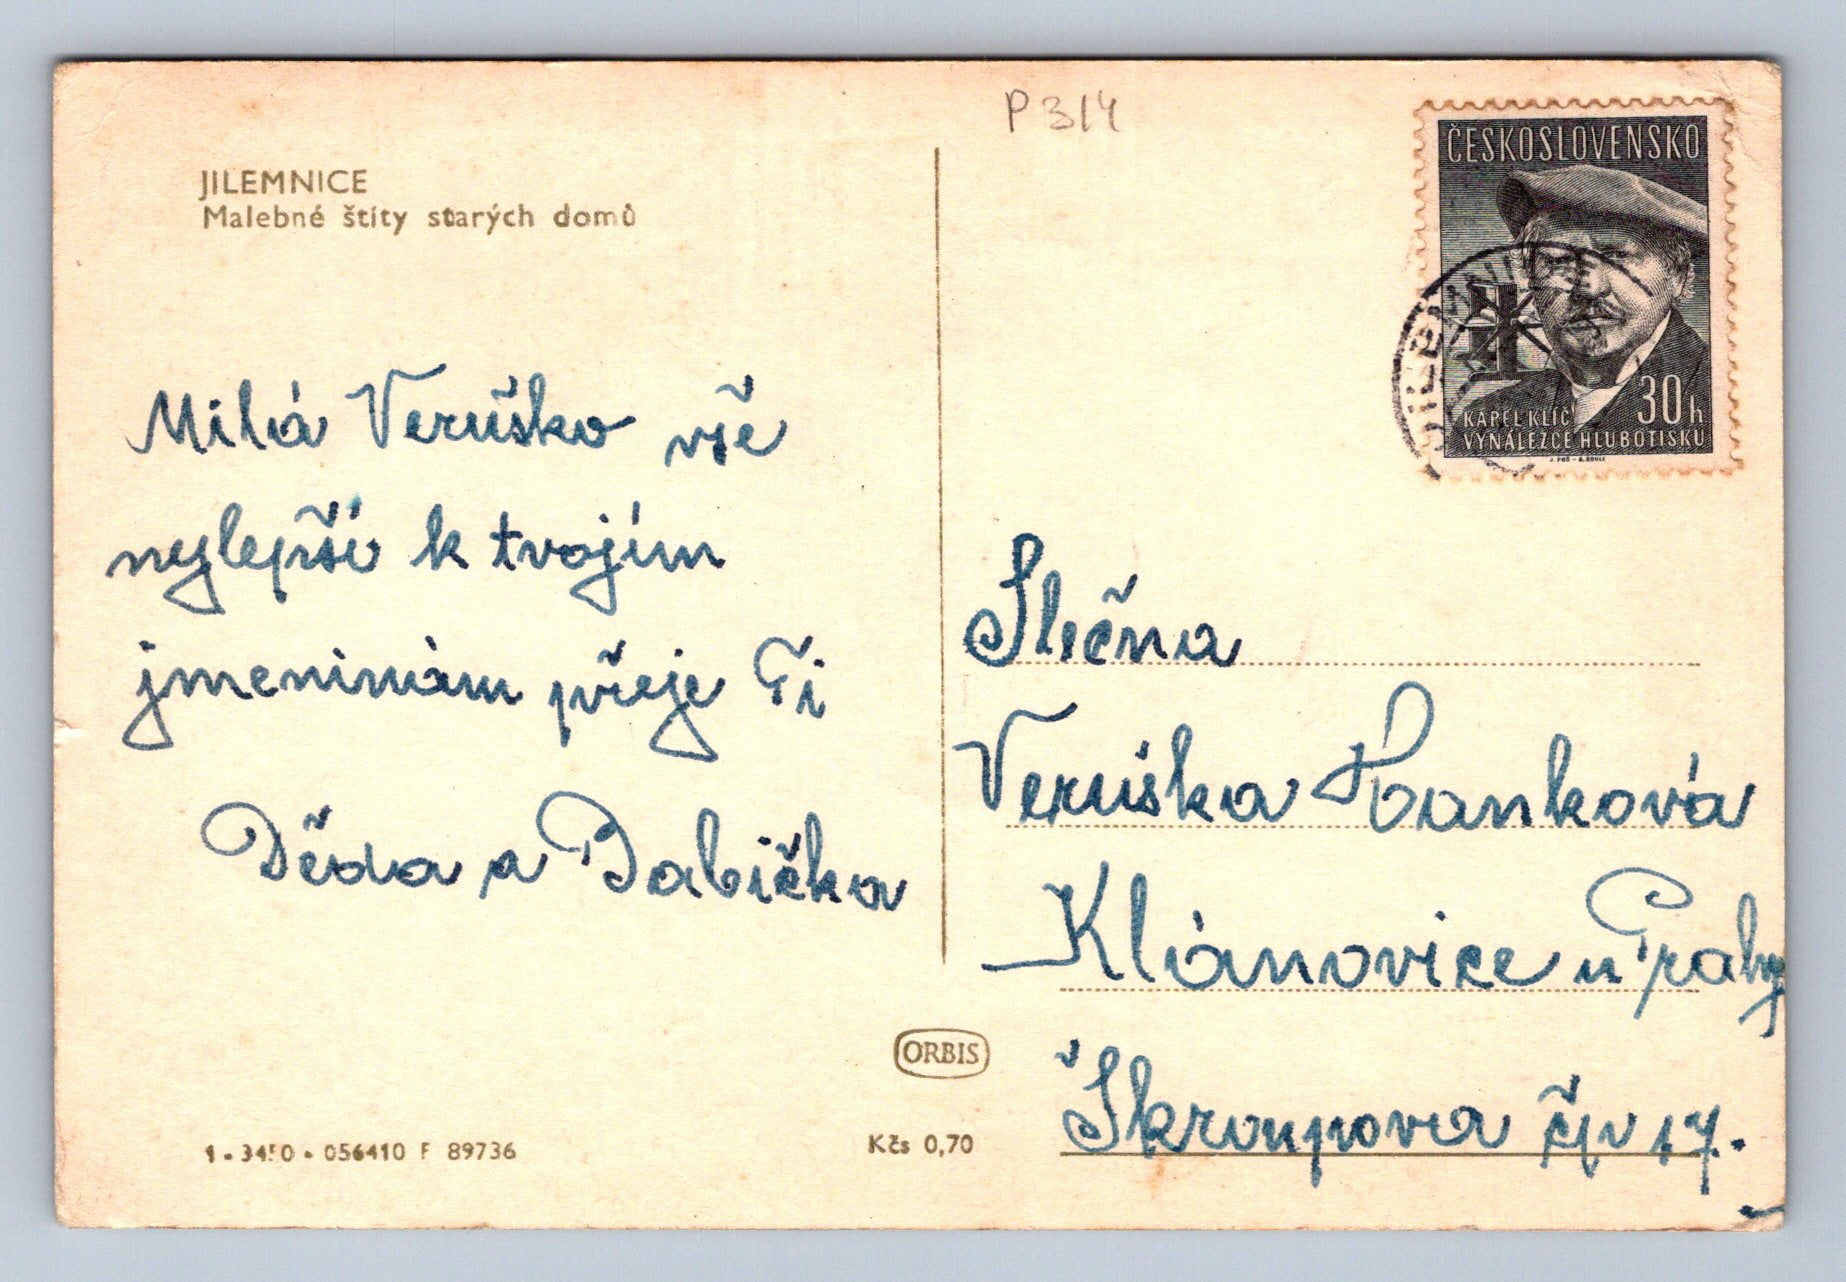 P 314
JILEMNICE
Malebné štíty starých domů
ČESKOSLOVENSKO
KAREL KLÍČ
30h
VYNÁLEZCE HLUBOTISKU
JILEMNICE
Milá Veruško vše
nejlepší k tvojím
jmeninám přeje Ti
Děda a Babička
Slečna
Veruška Hanková
Klánovice u Prahy
Škroupova čp 17.
ORBIS
Kčs 0,70
056410 F 89736